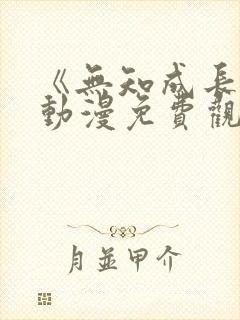 《無知成長
動漫免費觀
月並甲介